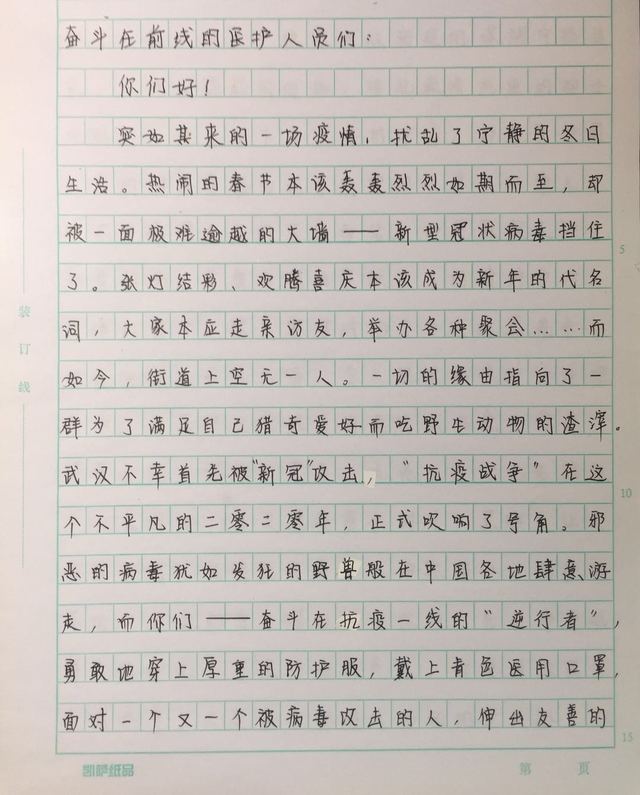 奋斗在前线的医护人员们：
你们好！
突如其来的一场疫情，扰乱了宁静的冬日
生活。热闹的春节本该轰轰烈烈如期而至，却
被一面极难逾越的大墙——新型冠状病毒挡住
了。张灯结彩、欢腾喜庆本该成为新年的代名
词，大家本应走亲访友，举办各种聚会……而
如今，街道上空无一人。一切的缘由指向了一
群为了满足自己猎奇爱好而吃野生动物的渣滓。
武汉不幸首先被“新冠”攻击，“抗疫战争”在这
个不平凡的二零二零年，正式吹响了号角。邪
恶的病毒犹如发狂的野兽般在中国各地肆意游
走，而你们——奋斗在抗疫一线的“逆行者”，
勇敢地穿上厚重的防护服，戴上青色医用口罩，
面对一个又一个被病毒攻击的人，伸出友善的
装订线
5
10
15
凯萨纸品
第 页